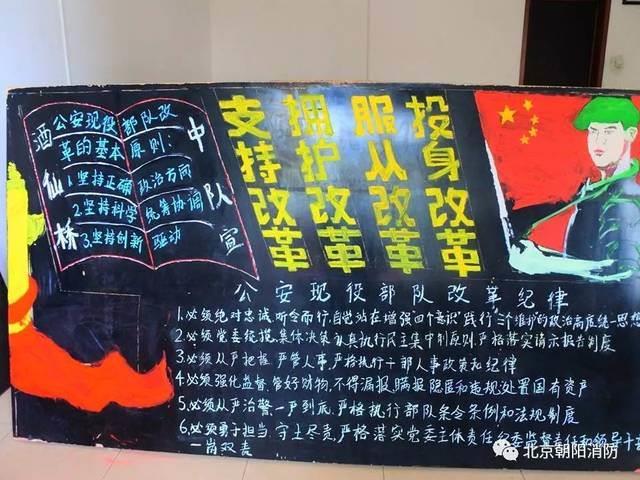 酒仙桥
中队宣
公安现役部队改
革的基本原则:
1.坚持正确政治方向
2.坚持科学统筹协调
3.坚持创新驱动
支持改革
拥护改革
服从改革
投身改革
公安现役部队改革纪律
1.必须绝对忠诚,听令而行,自觉站在增强四个意识"践行"三个维护"的政治高度统一思想
2.必须党委统揽,集体决策,认真执行民主集中制原则,严格落实请示报告制度
3.必须从严把握,严管人事,严格执行干部人事政策和纪律
4.必须强化监督,管好财物,不得漏报,瞒报,隐匿和违规处置国有资产
5.必须从严治警一严到底,严格执行部队条令条例和法规制度
6.必须勇于担当,守土尽责,严格落实党委主体责任纪委监督责任和领导干
一肖双责
北京朝阳消防